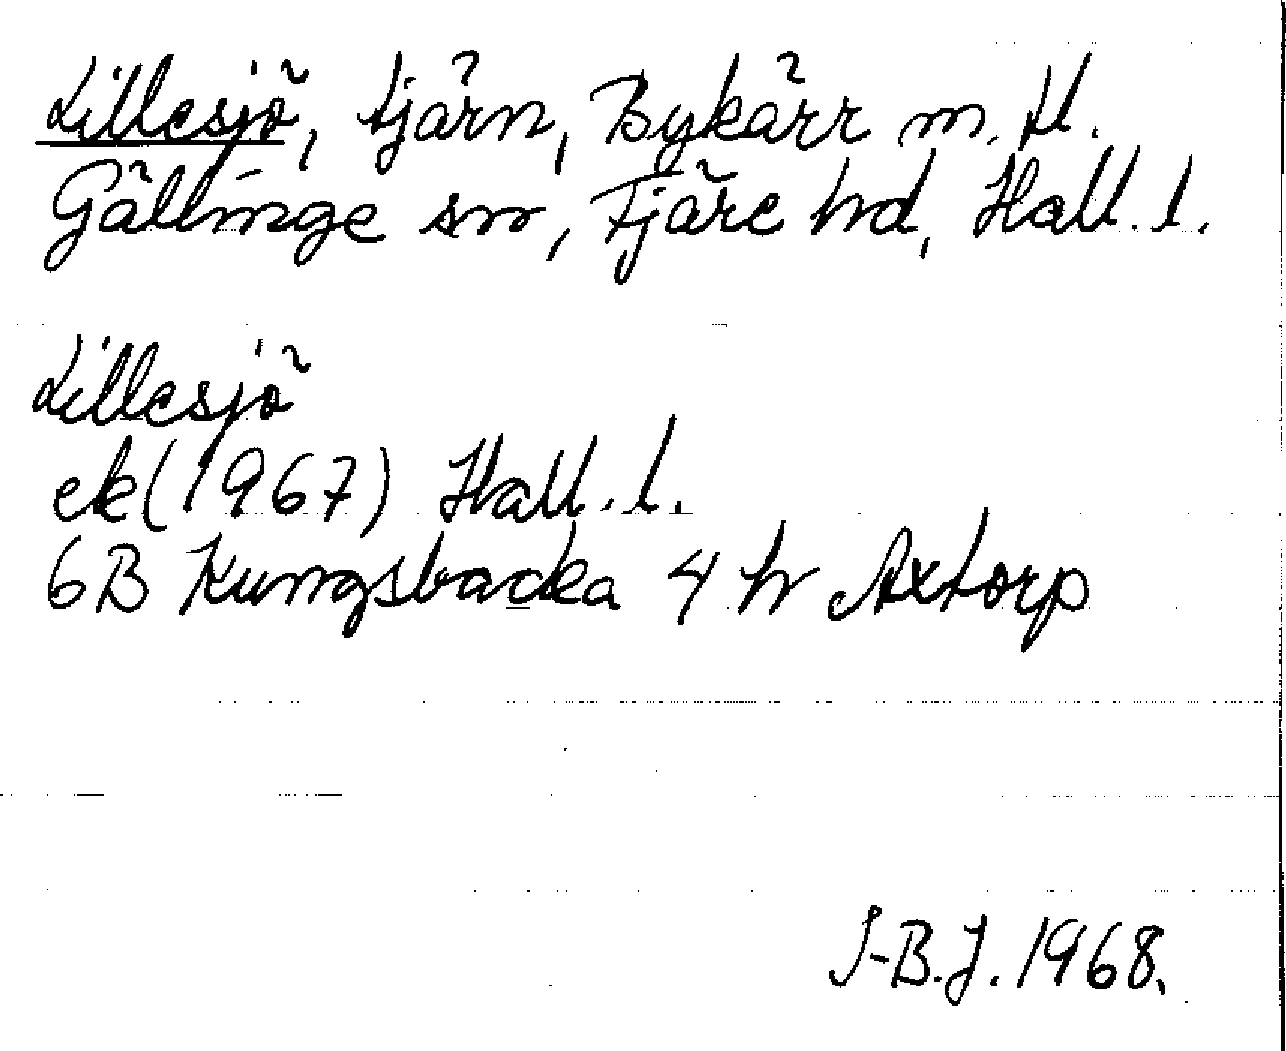 Lillesjö, tjärn, Bykärr m. fl.
Gällinge sn, Fjäre hd, Hall. l.
Lillesjö
ek (1967) Hall. l.
6B Kungsbacka 4 h Axtorp
I-B.J. 1968.